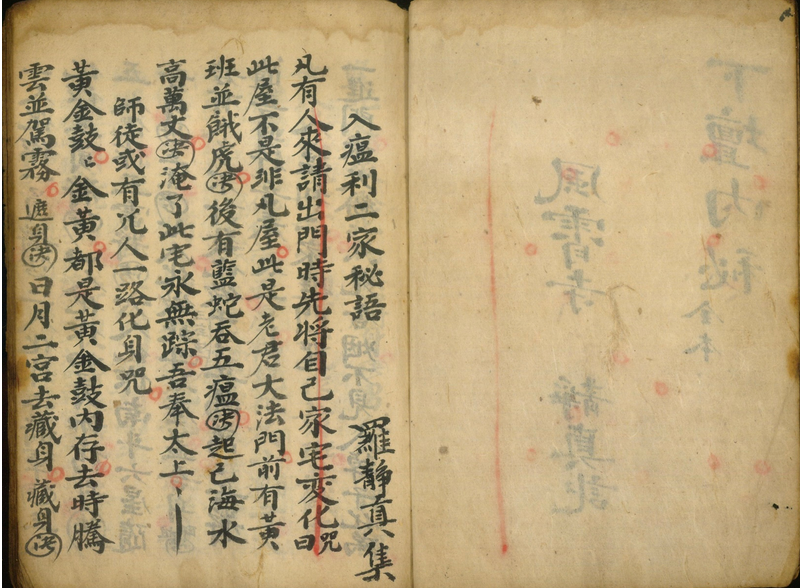 入瘟利二家秘語
羅静真集
凡有人來請出門時先將自己家宅变化咒曰
此屋不是非凡屋此是老君大法門前有黃
班並餓虎决後有藍蛇吞五瘟决起己海水
高萬丈决淹了此宅永無踪吾奉太上、丨
師徒或有凢人一路化身咒
黃金鼓〻金黃都是黃金鼓内存去時騰
雲並駕霧遮身决日月二宫去藏身藏身决